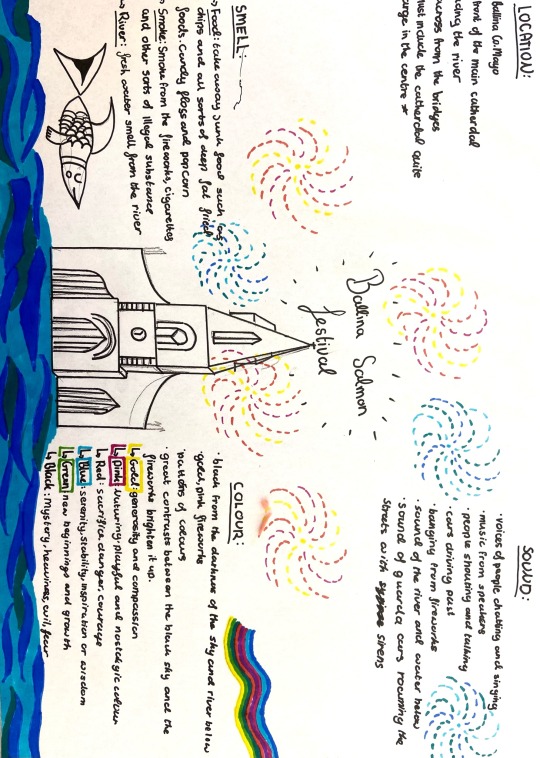 LOCATION:
Ballina Co. Mayo
front of the main catherdal
ding the river
across from the bridges
ust include the catherdal quite
arge in the centre *
SMELL:
↳ Food: take away junk food such as
chips and all sorts of deep fat fried
foods. Candy floss and popcorn
↳ Smoke: Smoke from the fireworks, cigarettes
and other sorts of illegal substance
↳ River: fresh water smell from the river
Ballina Salmon
festival
SOUND:
· voices of people chatting and singing
· music from speakers
· people shouting and talking
· cars driving past
· banging from fireworks
· sound of the river and water below
· sound of guarda cars roaming the
streets with sirens
COLOUR:
· black from the darkness of the sky and river below
· gold, pink fireworks
· patterns of colours
· great contrasts between the black sky and the
fireworks brighten it up.
↳ Gold: generosity and compassion
↳ Pink: nuturing, playful and nostalgic colour
↳ Red: sacrifice, danger, courage
↳ Blue: serenity, stability, inspiration or wisdom
↳ Green: new beginnings and growth
↳ Black: Mystery, heaviness, evil, fear